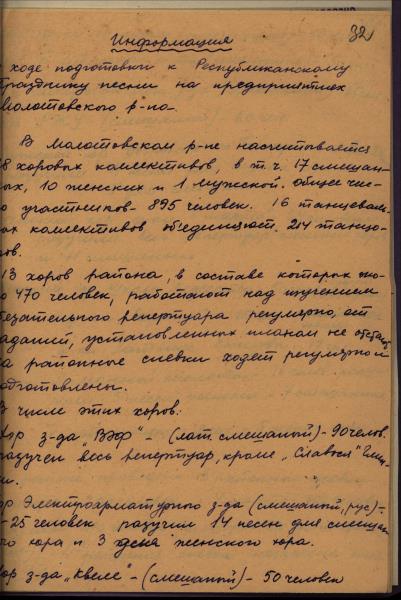 321
Информация
ходе подготовки к Республиканскому
Празднику песни на предприятиях
Молотовского р-на.
В Молотовском р-не насчитывается
8 хоровых коллективов, в т.ч. 17 смешан-
ых, 10 женских и 1 мужской. общее чис-
о участников - 895 человек. 16 танцеваль-
ых коллективов объединяют 214 танцо-
ров.
13 хоров района, в составе которых
о 470 человек, работают над изучением
бязательного репертуара регулярно, от
аданий, установленных планом не отстают
а районные спевки ходят регулярно и
одготовлены.
В числе этих хоров:
Хор з-да "ВЭФ" - (лат. смешаный) - 90 челов.
разучен весь репертуар, кроме "Славься"
ор Электроарматурного з-да (смешаный, рус) -
- 25 человек разучили 14 песен для смешан
го хора и 3 для женского хора.
Хор з-да "Квеле" - (смешаный) - 50 человек